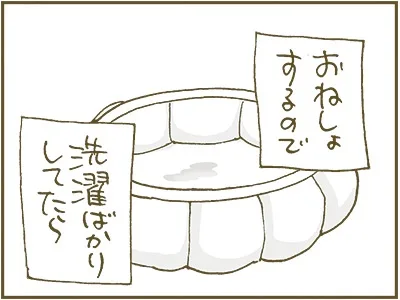 おねしょ
するので
洗濯ばかり
してたら